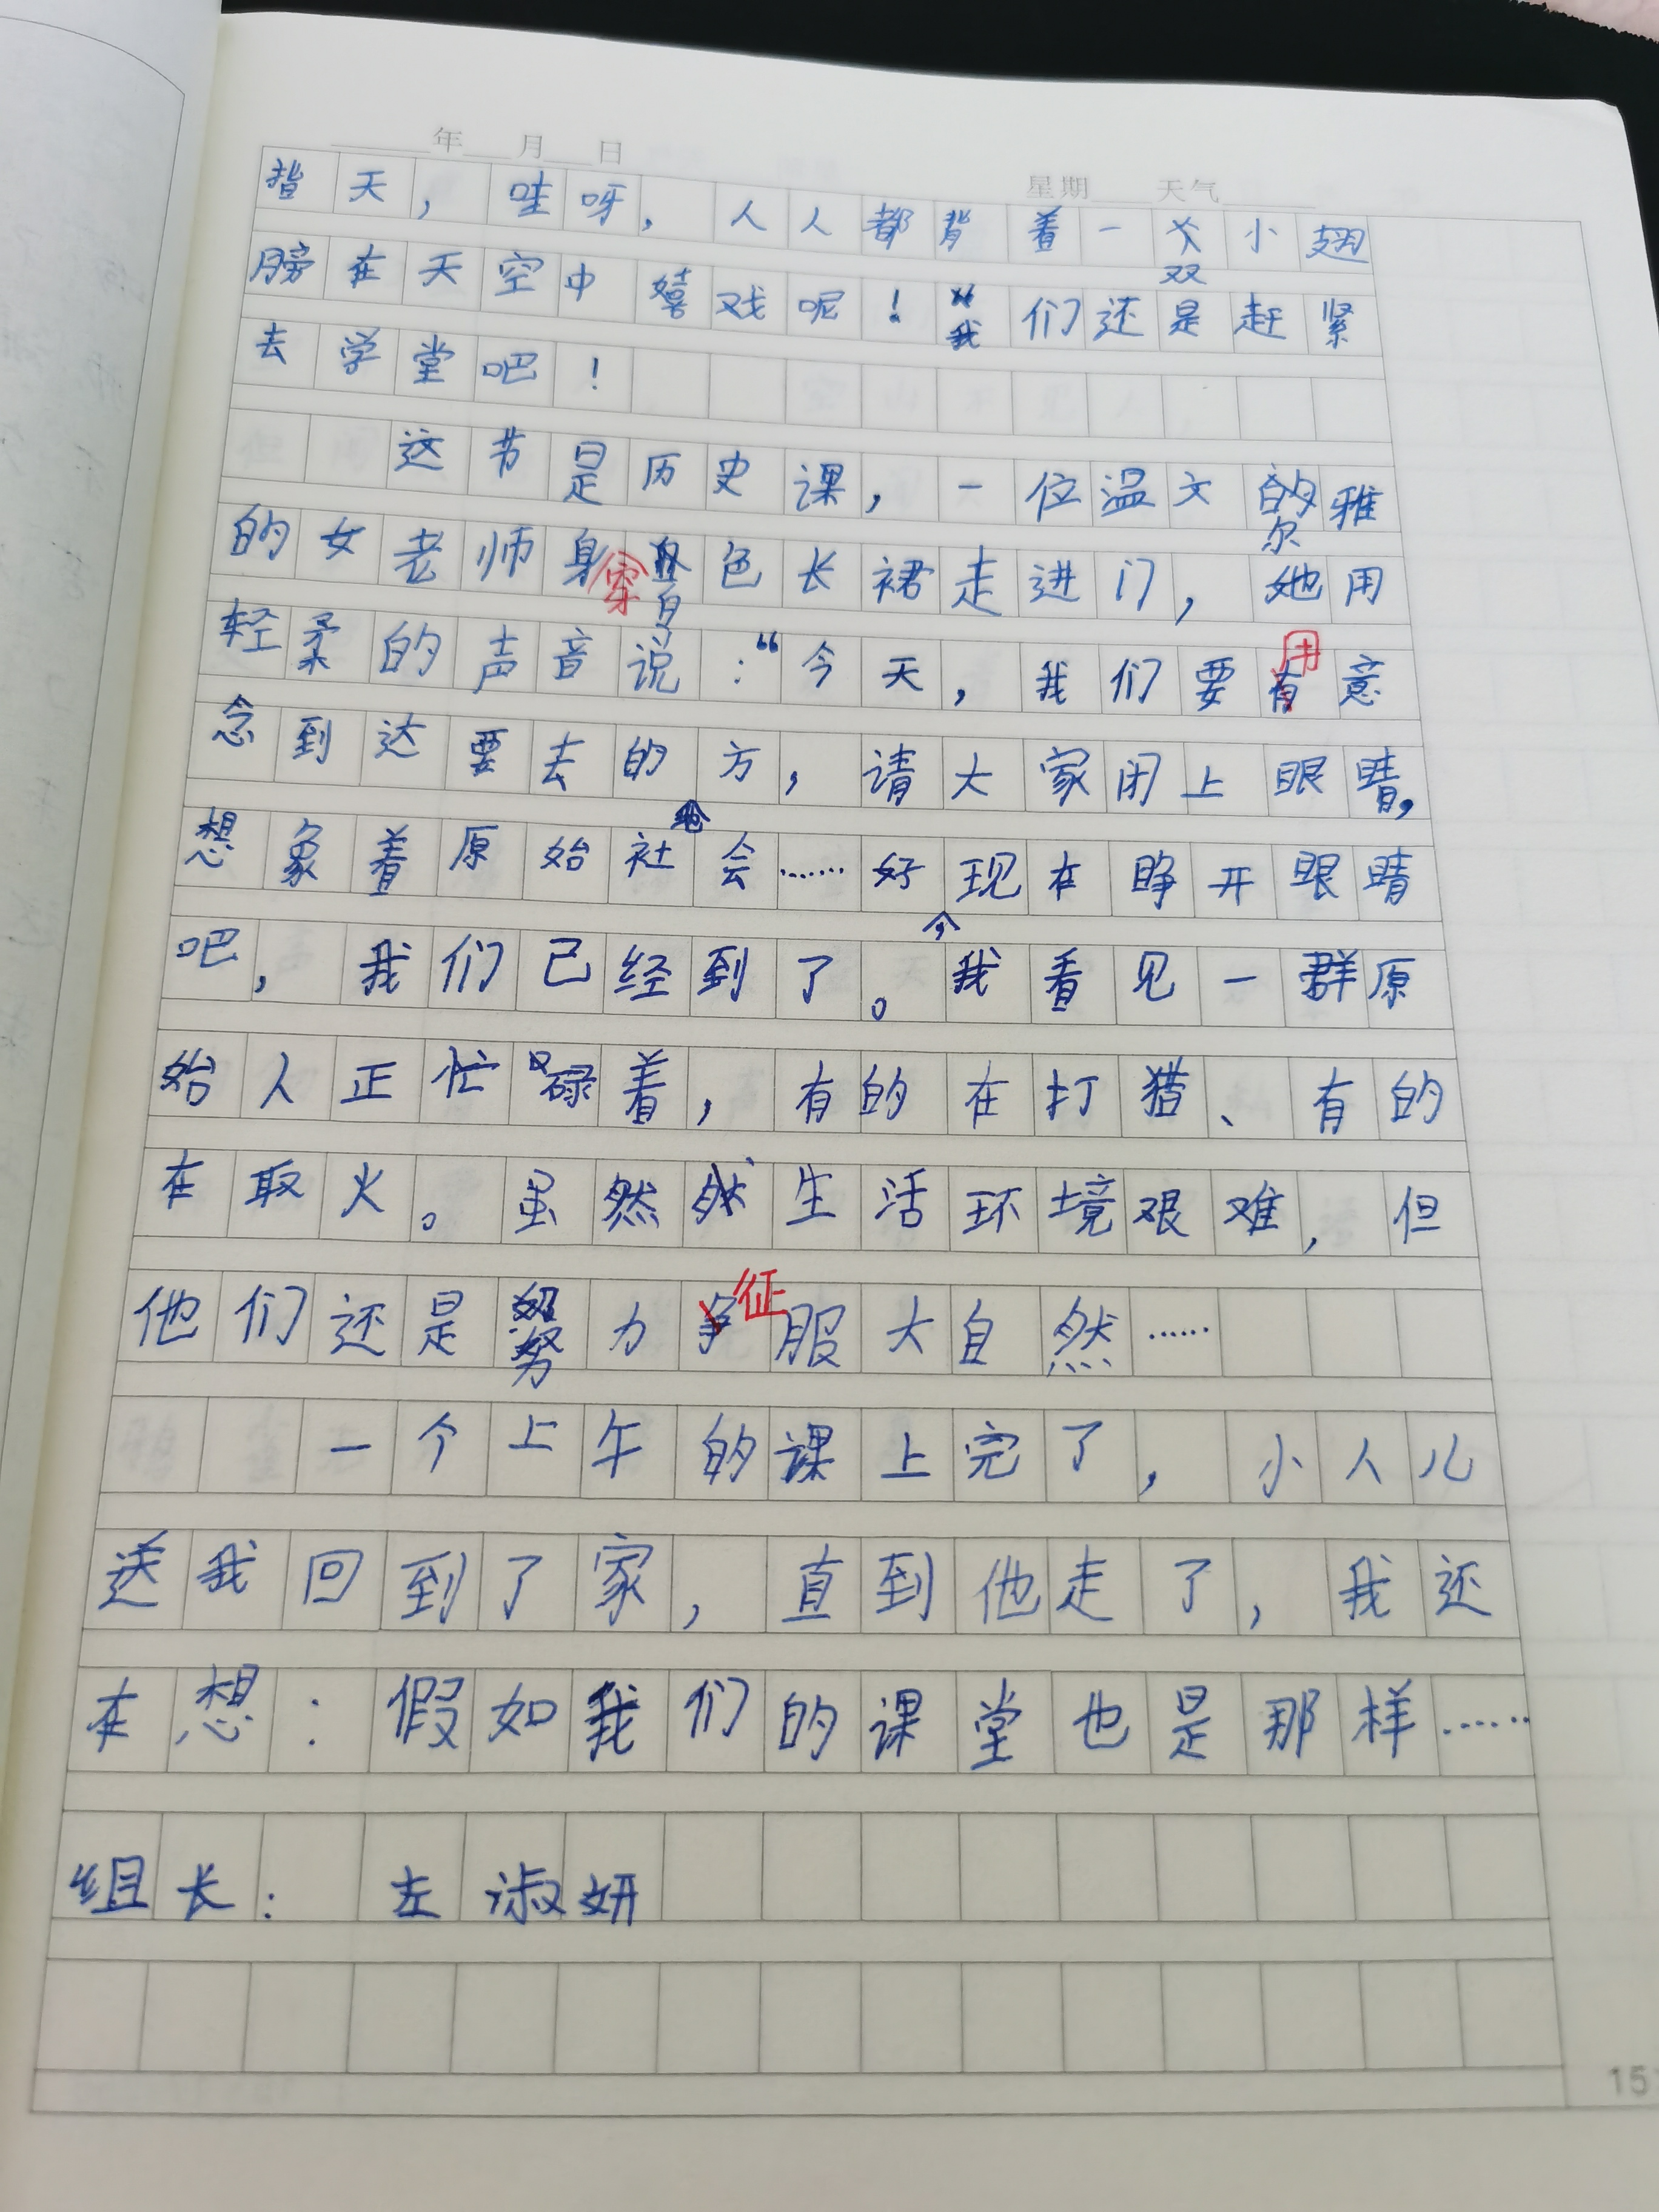 年 月 日
星期 天气
指天，哇呀，人人都背着一双小翅
膀在天空中嬉戏呢！我们还是赶紧
去学堂吧！
这节是历史课，一位温文尔雅
的女老师身穿白色长裙走进门，她用
轻柔的声音说：“今天，我们要用意
念到达要去的地方，请大家闭上眼睛，
想象着原始社会……好现在睁开眼睛
吧，我们已经到了。我看见一群原
始人正忙碌着，有的在打猎、有的
在取火。虽然生活环境艰难，但
他们还是努力征服大自然……
一个上午的课上完了，小人儿
送我回到了家，直到他走了，我还
在想：假如我们的课堂也是那样……
组长：左淑妍
15